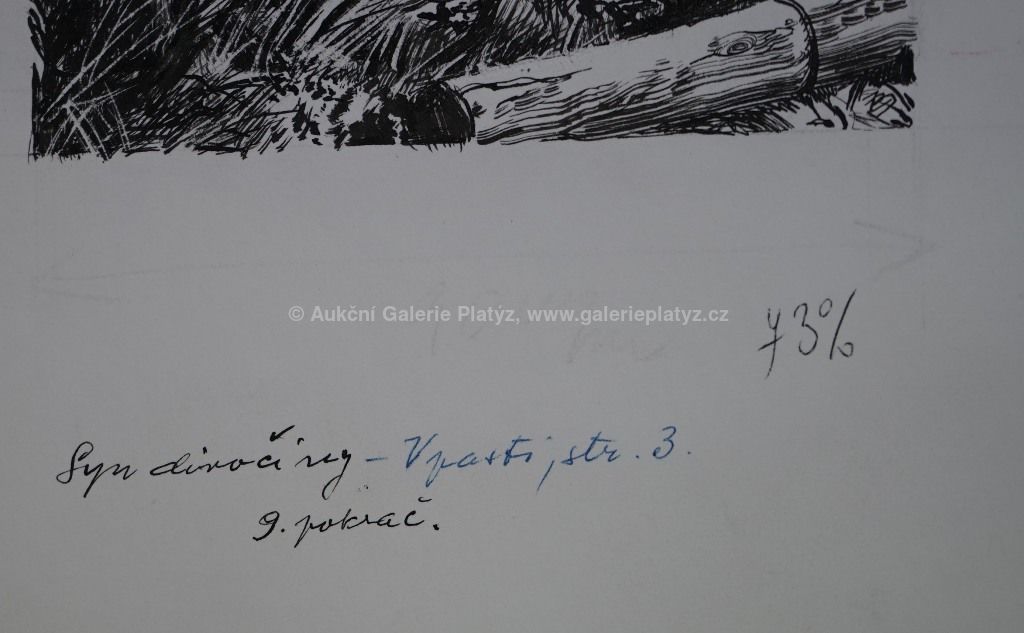 © Aukční Galerie Platýz, www.galerieplatyz.cz
73%
Syn divočiny – V pasti, str. 3.
9. pokrač.